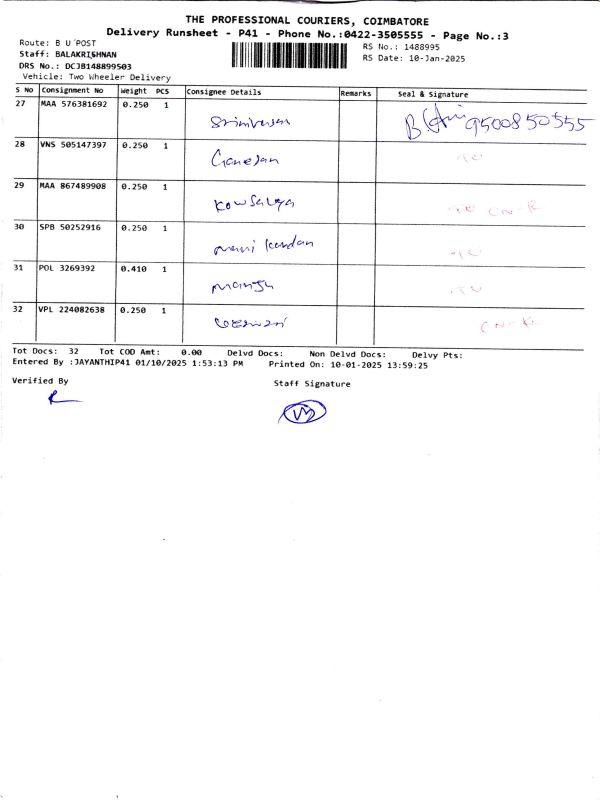 THE PROFESSIONAL COURIERS, COIMBATORE
Delivery Runsheet - P41 - Phone No.:0422-3505555 - Page No.:3
Route: B U POST
RS No.: 1488995
Staff: BALAKRISHNAN
RS Date: 10-Jan-2025
DRS No.: DCJB148899503
Vehicle: Two Wheeler Delivery
S No Consignment No Weight PCS Consignee Details Remarks Seal & Signature
27 MAA 576381692 0.250 1 Srinivasan 9500850555
28 VNS 505147397 0.250 1 Ganesan
29 MAA 867489908 0.250 1 Kowsalya CN-R
30 SPB 50252916 0.250 1 Mani kandan
31 POL 3269392 0.410 1 Manju
32 VPL 224082638 0.250 1
Tot Docs: 32 Tot COD Amt: 0.00 Delvd Docs: Non Delvd Docs: Delvy Pts:
Entered By :JAYANTHIP41 01/10/2025 1:53:13 PM Printed On: 10-01-2025 13:59:25
Verified By
Staff Signature